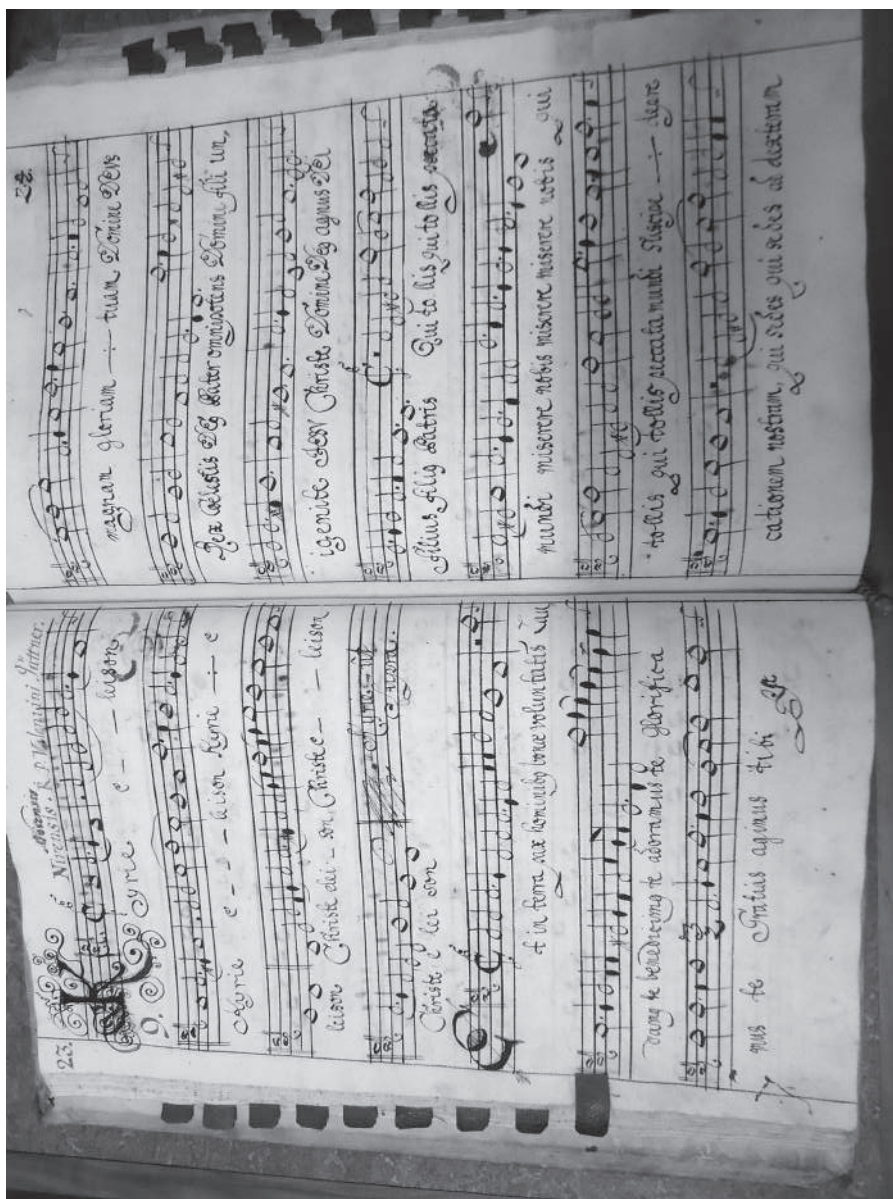 23.
Nisensis. R. P. Valentini Jüttner.
Kyrie e – – leison
9.
Kyrie e – – – leison Kyrie ÷ e
leison Christe elei – son, Christe e – – leison
Christe e lei son
Et in terra pax hominibꝫ bonæ voluntatis Lau
damꝫ te benedicimꝫ te adoramus te glorifica
mus te Gratias agimus tibi
24.
magnam gloriam ÷ tuam Domine Deus
Rex cœlestis Deꝫ Pater omnipotens Domini fili un,
igenite JESV Christe Domine Deꝫ agnus Dei
Filius filiꝫ Patris Qui tollis qui tollis peccata
mundi miserere nobis miserere miserere nobis qui
tollis qui tollis peccata mundi suscipe ÷ depre
cationem nostram, qui sedes qui sedes ad dexteram